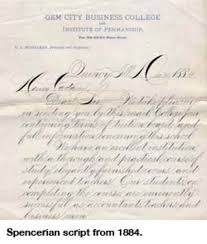 GEM CITY BUSINESS COLLEGE
AND
INSTITUTE OF PENMANSHIP.
Quincy, Ill. 188
Dear Sir: We take pleasure
in sending you by this mail Catalogue
containing Terms of Tuition, Cards and
full information concerning this school.
We have an excellent institution
with a thorough and practical course of
study, elegantly furnished rooms, and
experienced teachers. Our students on
completing the course are eminently
successful as accountants, teachers and
business men.
Spencerian script from 1884.